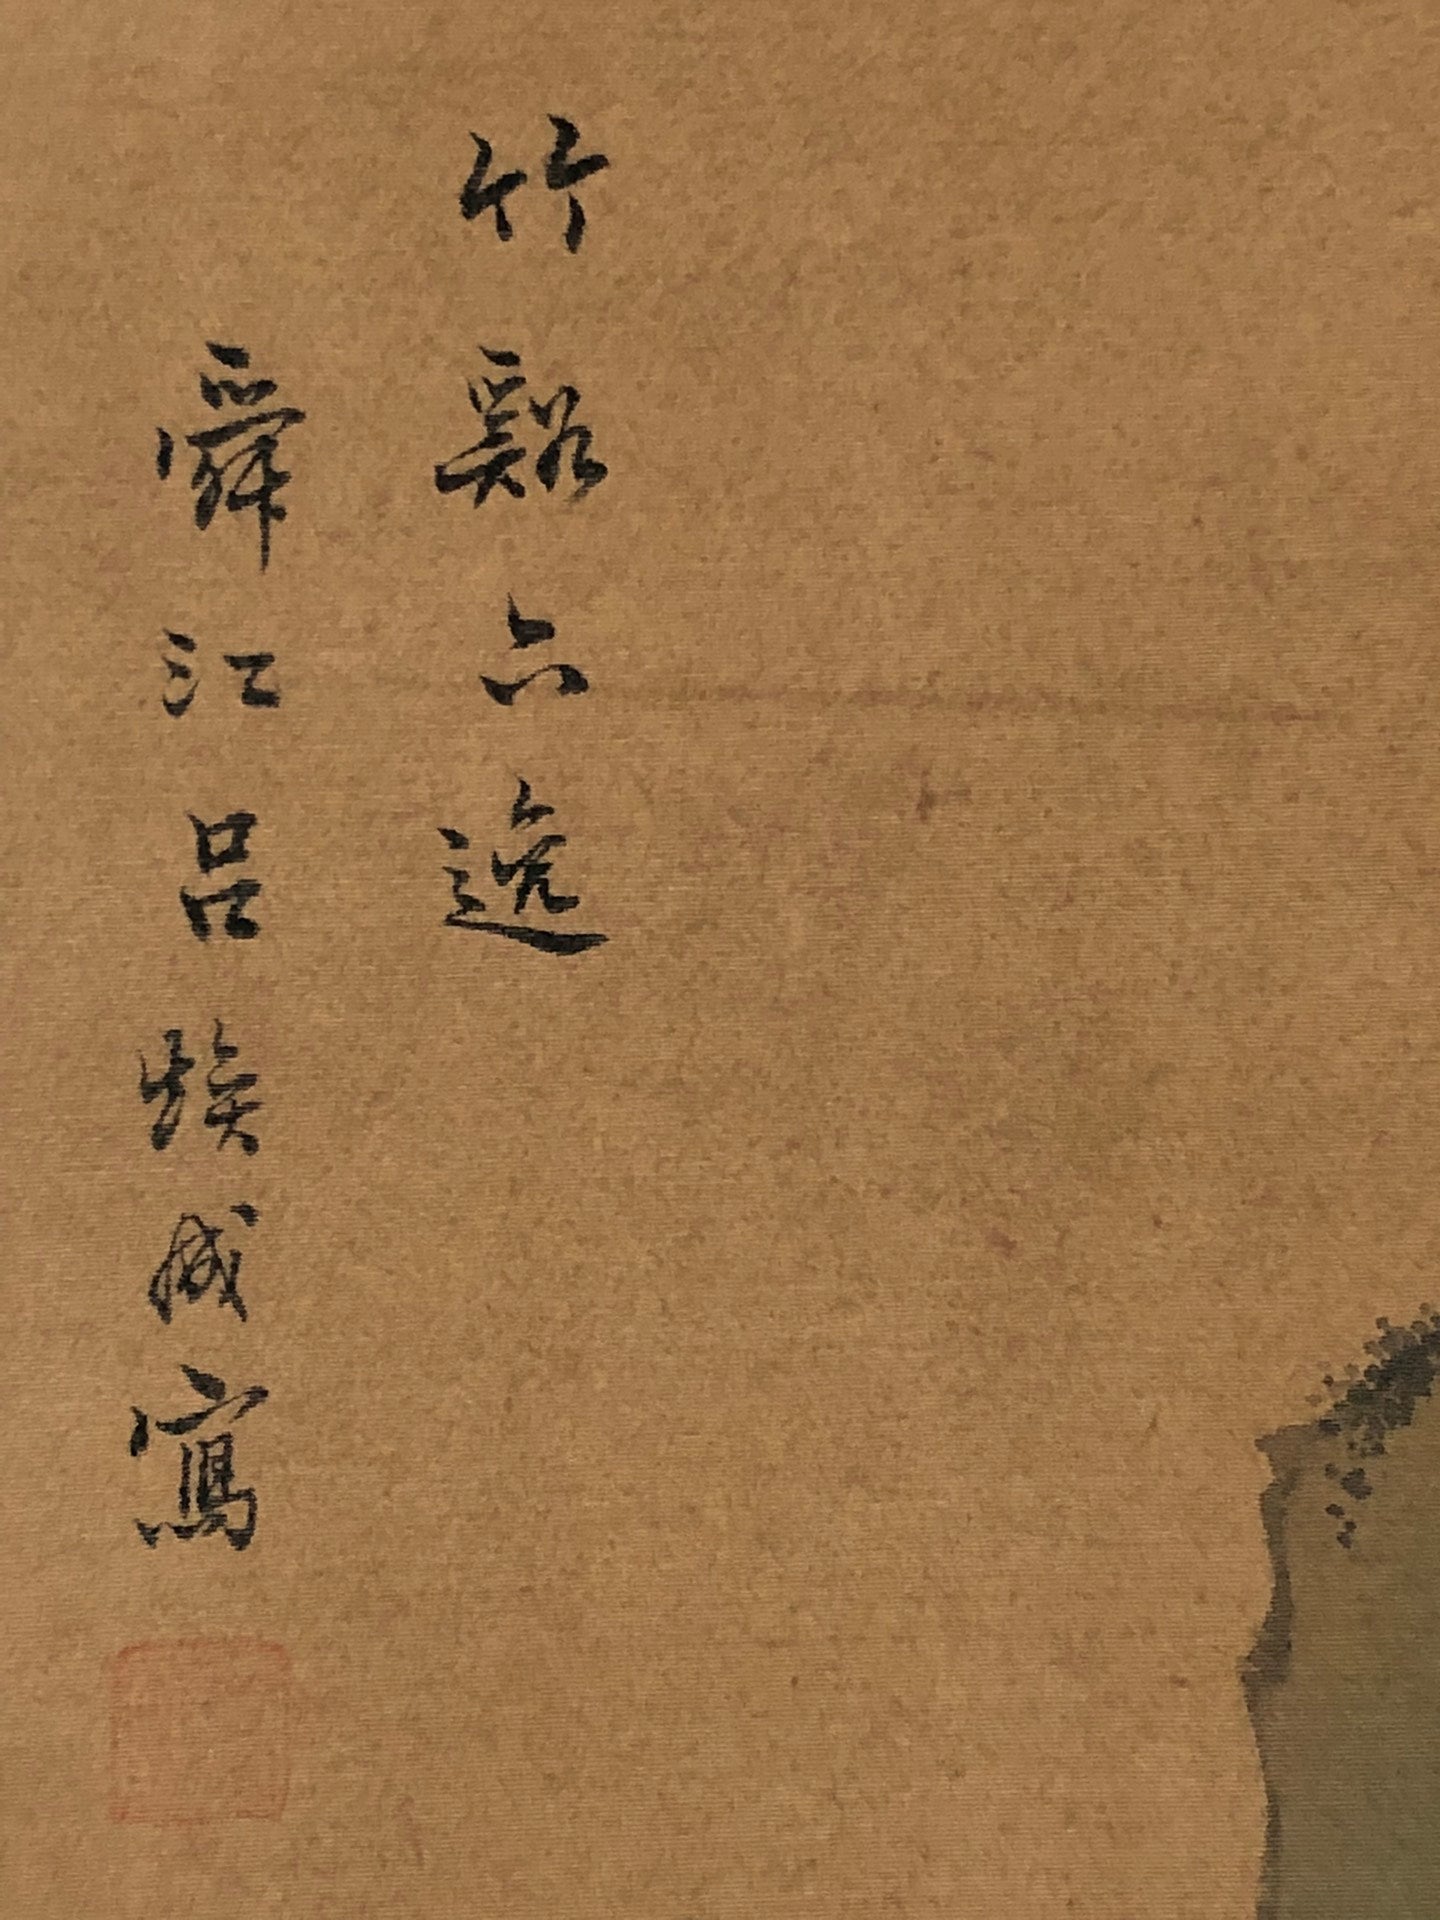 竹谿六逸
舜江呂焕成寫